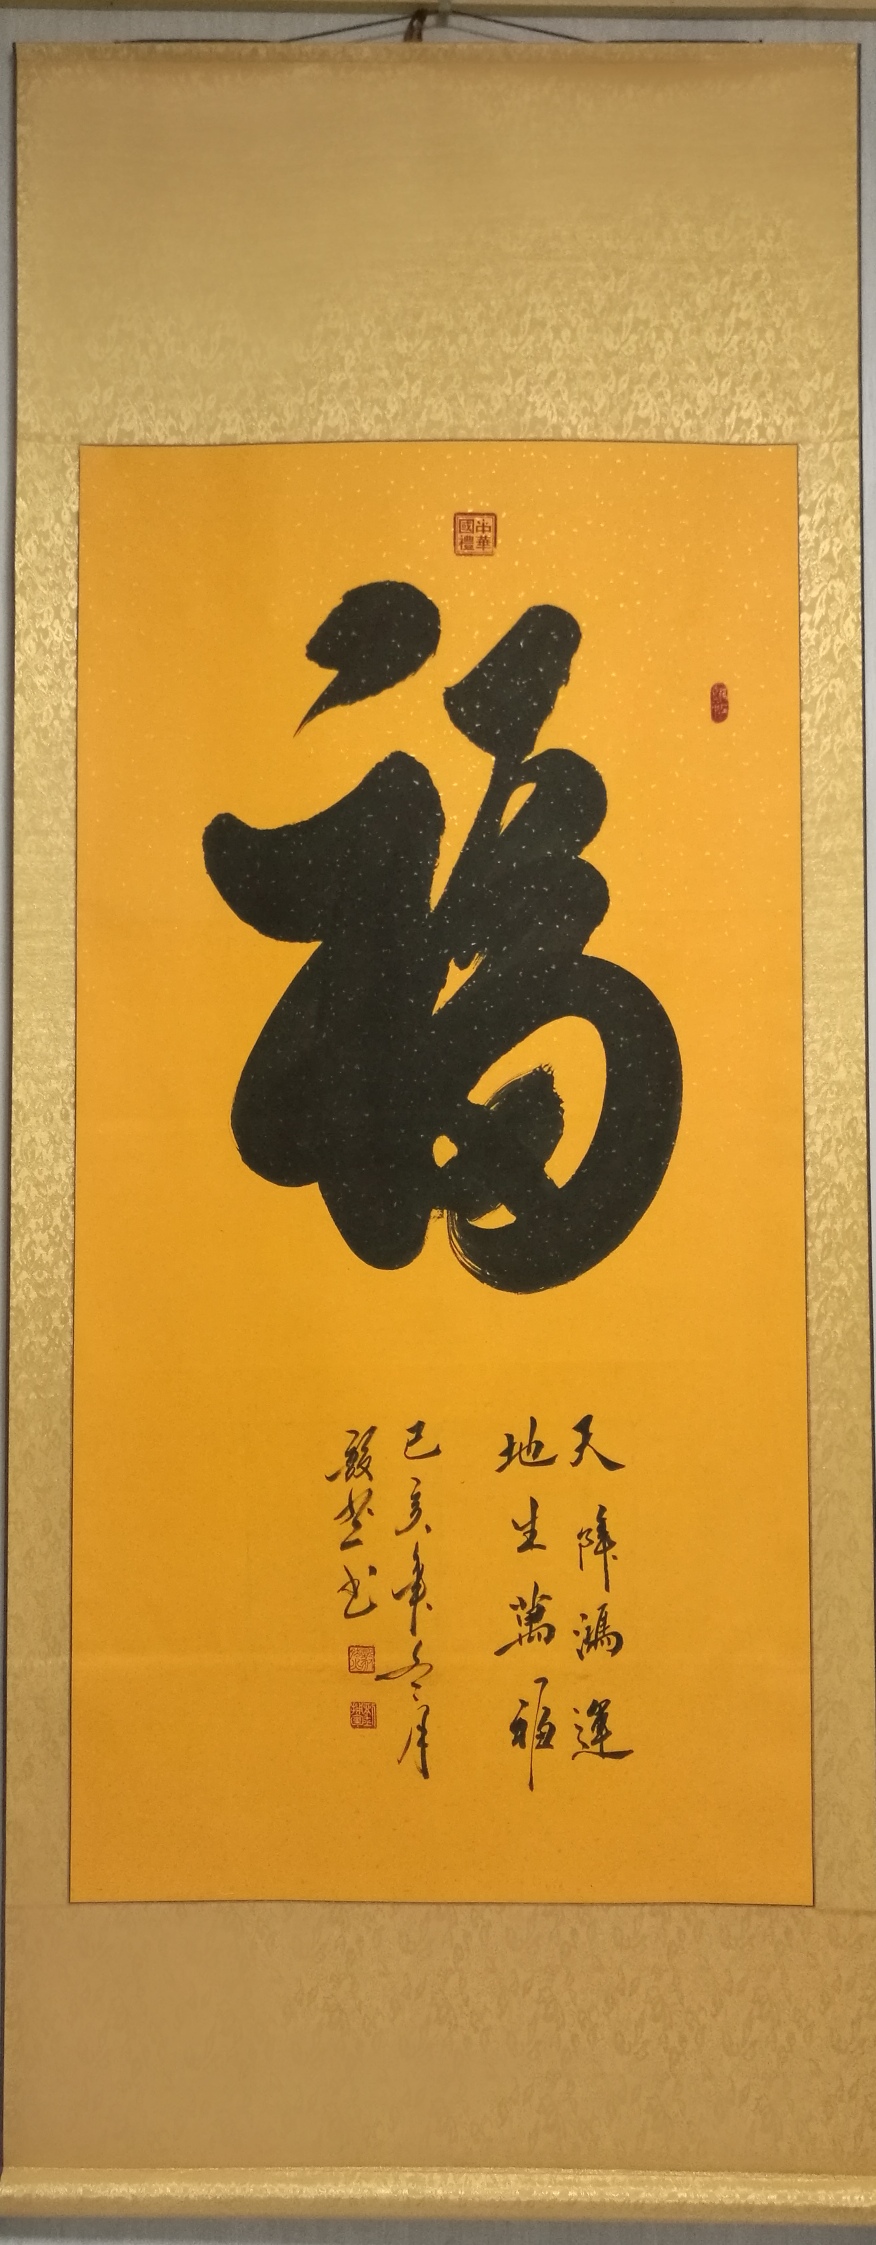 中華國禮
福
天降鴻運
地生萬福
己亥年冬月
書